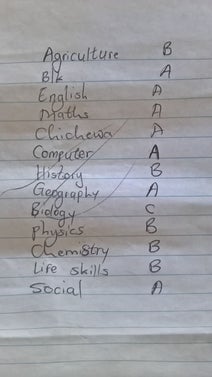 Agriculture B
Blk A
English A
Maths A
Chichewa A
Computer A
History B
Geography A
Biology C
physics B
Chemistry B
Life skills B
Social A